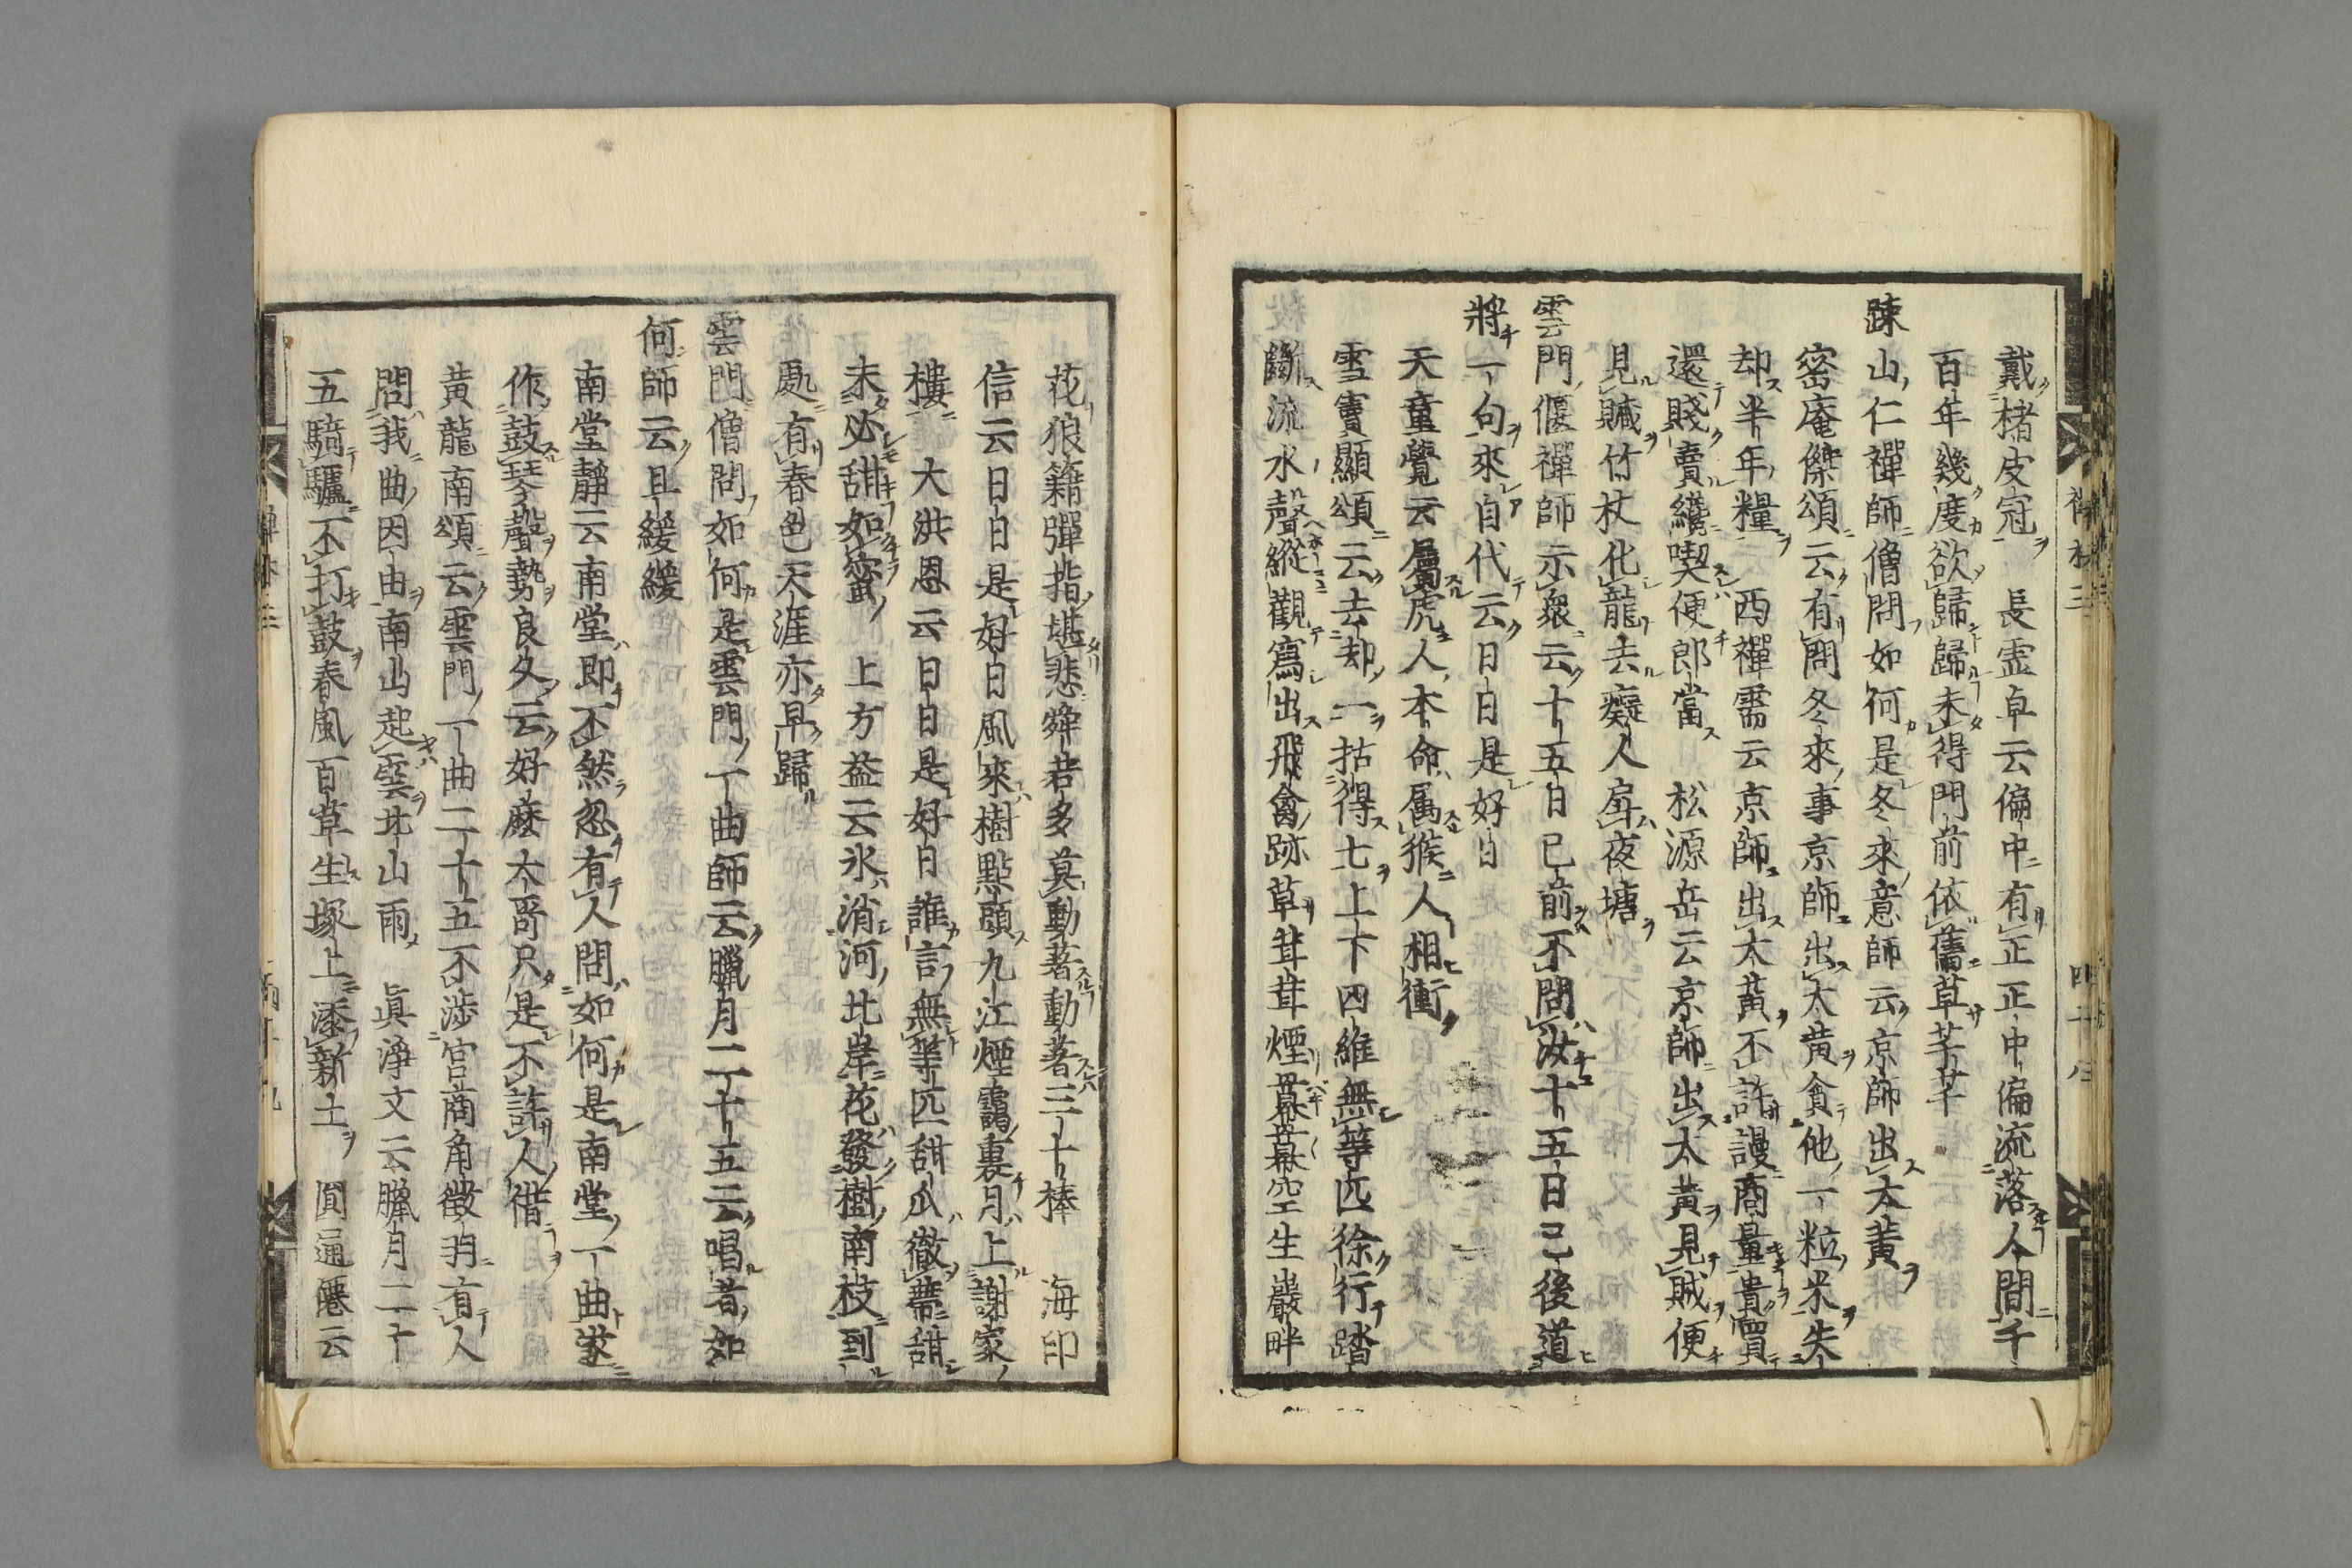 戴楮皮冠　長霊卓云偏中有正正中偏流落人間千
百年幾度欲歸歸未得門前依舊草芊芊
踈山仁禪師僧問如何是冬來意師云京師出大黄
密庵傑頌云有問冬來事京師出大黄貪他一粒米失
却半年糧　西禪需云京師出大黄不許謾商量貴買
還賤賣纔喫便郎當　松源岳云京師出大黄見賊便
見贓竹杖化龍去癡人戽夜塘
雲門偃禪師示衆云十五日已前不問汝十五日已後道
將一句來自代云日日是好日
天童覺云屬虎人本命屬猴人相衝
雪竇顯頌云去却一拈得七上下四維無等匹徐行踏
斷流水聲縱觀寫出飛禽跡草茸茸煙羃羃空生巖畔
花狼籍彈指堪悲舜若多莫動著動著三十棒　海印
信云日日是好日風來樹點頭九江煙靄裏月上謝家
樓　大洪恩云日日是好日誰言無等匹甜瓜徹蔕甜
未必甜如蜜　上方益云氷消河北岸花發樹南枝到
處有春色天涯亦早歸
雲門僧問如何是雲門一曲師云臘月二十五云唱者如
何師云且緩緩
南堂靜云南堂即不然忽有人問如何是南堂一曲遂
作鼓琴聲勢良久云好麽大哥只是不許人借
黄龍南頌云雲門一曲二十五不渉宮商角徴羽有人
問我曲因由南山起雲北山雨　眞淨文云臘月二十
五騎驢不打鼓春風百草生塚上添新土　圓通僊云